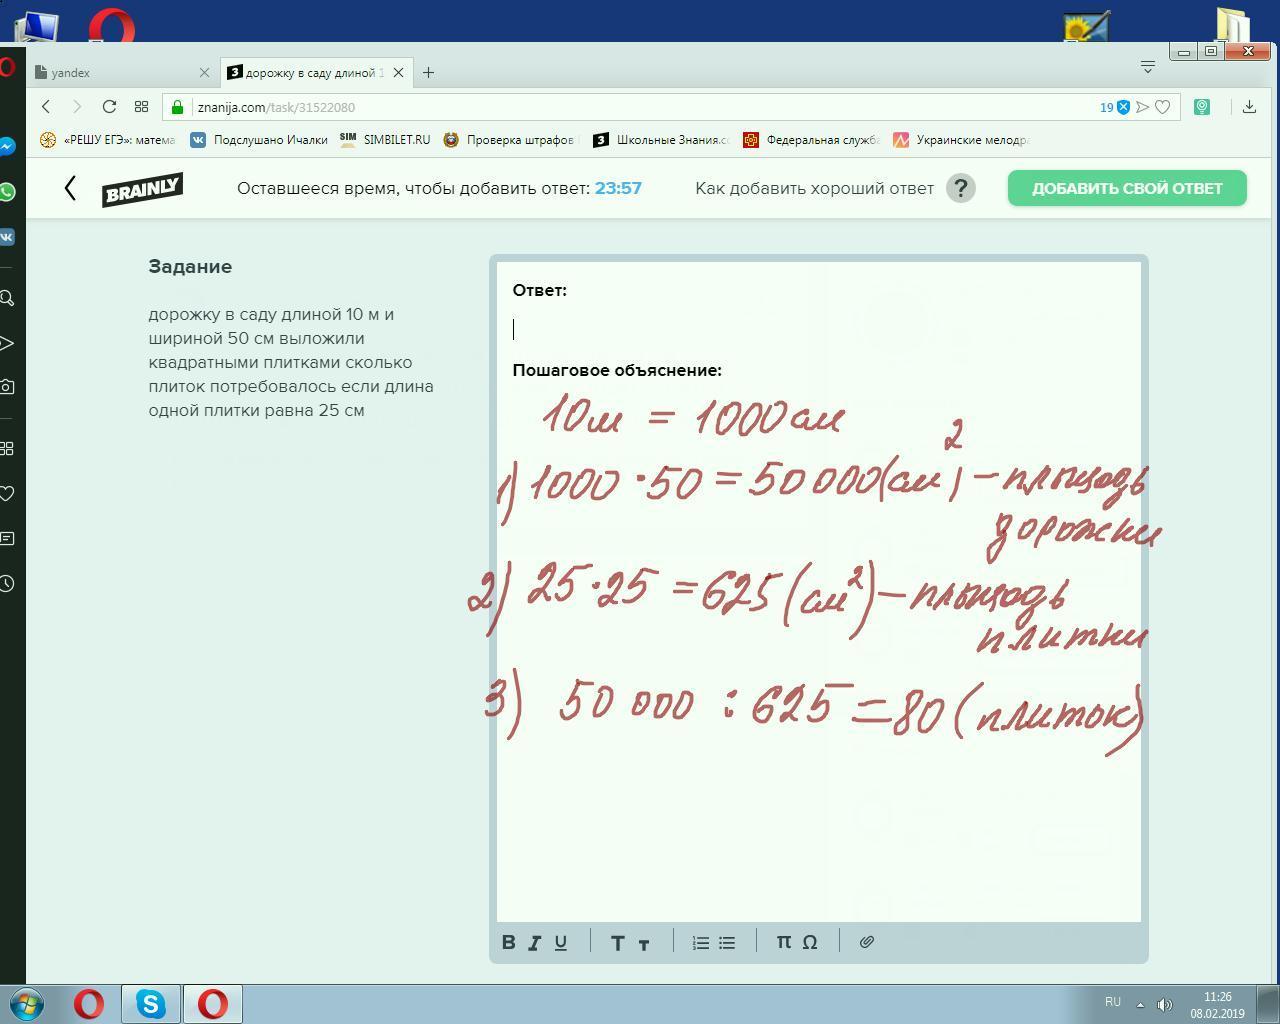 yandex
дорожку в саду длиной 1
znanija.com/task/31522080
19
«РЕШУ ЕГЭ»: матема
Подслушано Ичалки
SIM
SIMBILET.RU
Проверка штрафов
Школьные Знания.co
Федеральная служба
Украинские мелодра
BRAINLY
Оставшееся время, чтобы добавить ответ: 23:57
Как добавить хороший ответ
?
ДОБАВИТЬ СВОЙ ОТВЕТ
Задание
дорожку в саду длиной 10 м и
шириной 50 см выложили
квадратными плитками сколько
плиток потребовалось если длина
одной плитки равна 25 см
Ответ:
Пошаговое объяснение:
10м = 1000см
1) 1000·50=50000(см²) – площадь
дорожки
2) 25·25=625(см²) – площадь
плитки
3) 50 000 : 625=80 (плиток)
B I U T т π Ω
RU
11:26
08.02.2019